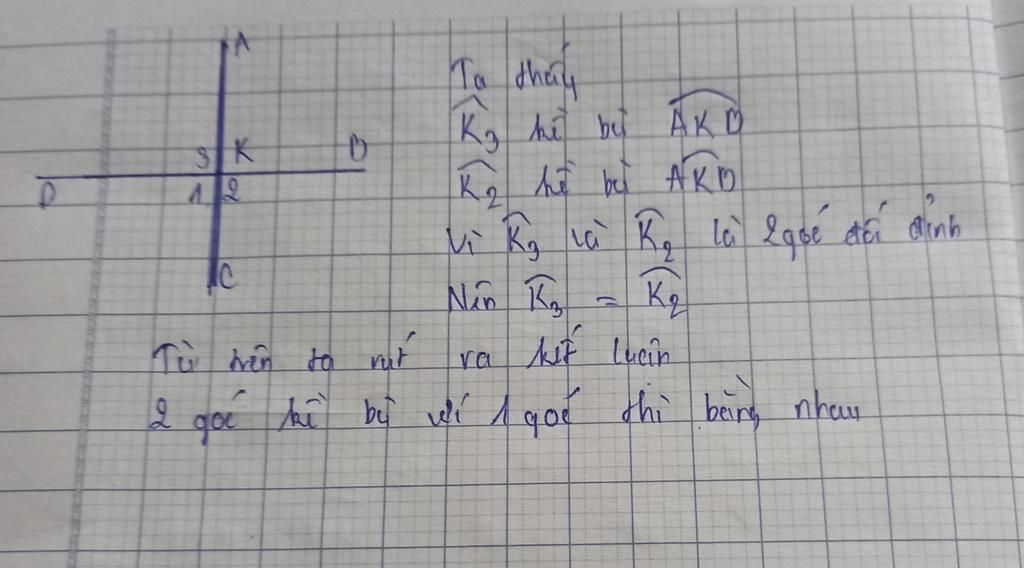 A
3 K B
D 1 2
C
Ta thấy
K̂3 kề bù AKB
K̂2 kề bù AKB
Vì K̂3 và K̂2 là 2 góc đối đỉnh
Nên K̂3 = K̂2
Từ trên ta rút ra kết luận
2 góc kề bù với 1 góc thì bằng nhau